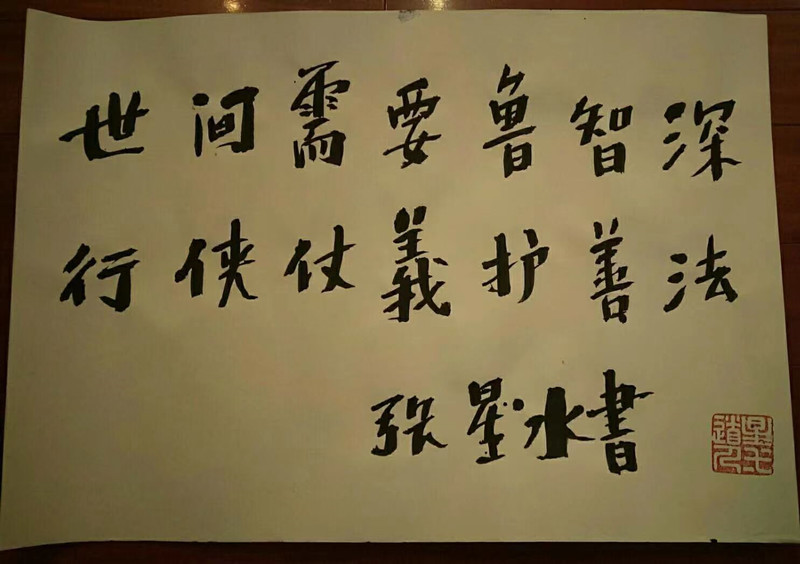 世间需要鲁智深
行侠仗義护善法
张星水書